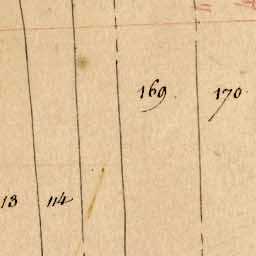 169. 170.
13 114